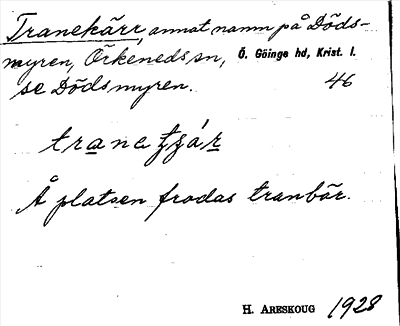 Tranekärr, annat namn på Döds-
myren, Örkeneds sn, Ö. Göinge hd, Krist. l.
se Dödsmyren. 46
Å platsen frodas tranbär.
H. ARESKOUG 1928